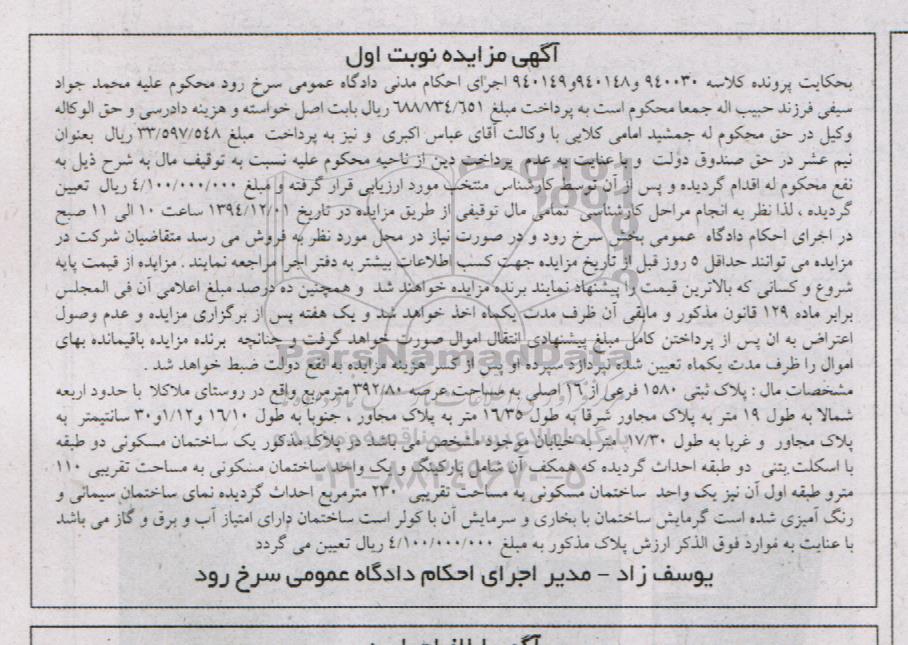 آگهی مزایده نوبت اول
بحکایت پرونده کلاسه ۹٤۰۰۳۰ و۹٤۰۱٤۸و ۹٤۰۱٤۹ اجرای احکام مدنی دادگاه عمومی سرخ رود محکوم علیه محمد جواد
سیفی فرزند حبیب اله جمعا محکوم است به پرداخت مبلغ ٦۸۸/۷۳٤/٦٥۱ ریال بابت اصل خواسته و هزینه دادرسی و حق الوکاله
وکیل در حق محکوم له جمشید امامی کلایی با وکالت آقای عباس اکبری و نیز به پرداخت مبلغ ۳۳/٥۹۷/٥٤۸ ریال بعنوان
نیم عشر در حق صندوق دولت و با عنایت به عدم پرداخت دین از ناحیه محکوم علیه نسبت به توقیف مال به شرح ذیل به
نفع محکوم له اقدام گردیده و پس از آن توسط کارشناس منتخب مورد ارزیابی قرار گرفته و مبلغ ٤/۱۰۰/۰۰۰/۰۰۰ ریال تعیین
گردیده ، لذا نظر به انجام مراحل کارشناسی تمامی مال توقیفی از طریق مزایده در تاریخ ۱۳۹٤/۱۲/۰۱ ساعت ۱۰ الی ۱۱ صبح
در اجرای احکام دادگاه عمومی بخش سرخ رود و در صورت نیاز در محل مورد نظر به فروش می رسد متقاضیان شرکت در
مزایده می توانند حداقل ٥ روز قبل از تاریخ مزایده جهت کسب اطلاعات بیشتر به دفتر اجرا مراجعه نمایند . مزایده از قیمت پایه
شروع و کسانی که بالاترین قیمت را پیشنهاد نمایند برنده مزایده خواهند شد و همچنین ده درصد مبلغ اعلامی آن فی المجلس
برابر ماده ۱۲۹ قانون مذکور و مابقی آن ظرف مدت یکماه اخذ خواهد شد و یک هفته پس از برگزاری مزایده و عدم وصول
اعتراض به ان پس از پرداختن کامل مبلغ پیشنهادی انتقال اموال صورت خواهد گرفت و چنانچه برنده مزایده باقیمانده بهای
اموال را ظرف مدت یکماه تعیین شده نپردازد سپرده او پس از کسر هزینه مزایده به نفع دولت ضبط خواهد شد .
مشخصات مال : پلاک ثبتی ۱٥۸۰ فرعی از ۱٦ اصلی به مساحت عرصه ۳۹۲/۸۰ مترمربع واقع در روستای ملاکلا با حدود اربعه
شمالا به طول ۱۹ متر به پلاک مجاور شرقا به طول ۱٦/۳٥ متر به پلاک مجاور ، جنوبا به طول ۱٦/۱۰ و۱/۱۲و۳۰ سانتیمتر به
پلاک مجاور و غربا به طول ۱۷/۳۰ متر به خیابان موجود مشخص می باشد در پلاک مذکور یک ساختمان مسکونی دو طبقه
با اسکلت بتنی دو طبقه احداث گردیده که همکف آن شامل پارکینگ و یک واحد ساختمان مسکونی به مساحت تقریبی ۱۱۰
مترو طبقه اول آن نیز یک واحد ساختمان مسکونی به مساحت تقریبی ۲۳۰ مترمربع احداث گردیده نمای ساختمان سیمانی و
رنگ آمیزی شده است گرمایش ساختمان با بخاری و سرمایش آن با کولر است ساختمان دارای امتیاز آب و برق و گاز می باشد
با عنایت به موارد فوق الذکر ارزش پلاک مذکور به مبلغ ٤/۱۰۰/۰۰۰/۰۰۰ ریال تعیین می گردد
یوسف زاد - مدیر اجرای احکام دادگاه عمومی سرخ رود
ParsNamadData
۰۲۱-۸۸۳٤۹٦۷۰-٥